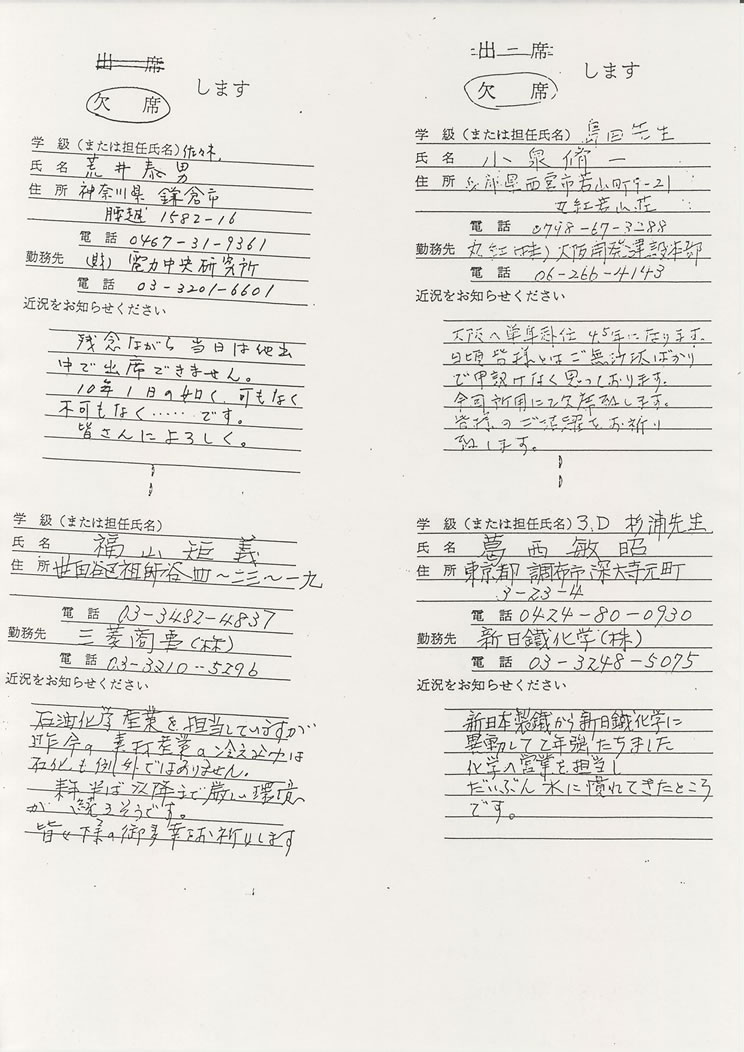 出席
欠席 します
学級(または担任氏名)佐々木
氏名 荒井泰男
住所 神奈川県 鎌倉市
腰越 1582-16
電話 0467-31-9361
勤務先 (財) 電力中央研究所
電話 03-3201-6601
近況をお知らせください
残念ながら 当日は他出
中で出席できません。
10年1日の如く、可もなく
不可もなく……です。
皆さんによろしく。
出席
欠席 します
学級(または担任氏名) 島田先生
氏名 小泉脩一
住所 兵庫県西宮市若山町9-21
丸紅若山荘
電話 0798-67-3288
勤務先 丸紅(株) 大阪開発建設本部
電話 06-266-4143
近況をお知らせください
大阪へ単身赴任 4.5年になります。
日頃皆様にはご無沙汰ばかり
で申訳けなく思っております。
今回所用にて欠席致します。
皆様のご活躍をお祈り
致します。
学級(または担任氏名)
氏名 福山矩義
住所 世田谷区祖師谷 四~二三~一九
電話 03-3482-4837
勤務先 三菱商事(株)
電話 03-3210-5296
近況をお知らせください
石油化学産業を担当していますが
昨今の素材産業の冷え込みは
石化も例外ではありません。
来年半ば以降まで厳しい環境
が続きそうです。
皆々様の御多幸をお祈りします
学級(または担任氏名) 3.D 杉浦先生
氏名 葛西敏昭
住所 東京都 調布市 深大寺元町
3-23-4
電話 0424-80-0930
勤務先 新日鐵化学(株)
電話 03-3248-5075
近況をお知らせください
新日本製鐵から新日鐵化学に
異動して2年強たちました
化学へ営業を担当し
だいぶん水に慣れてきたところ
です。